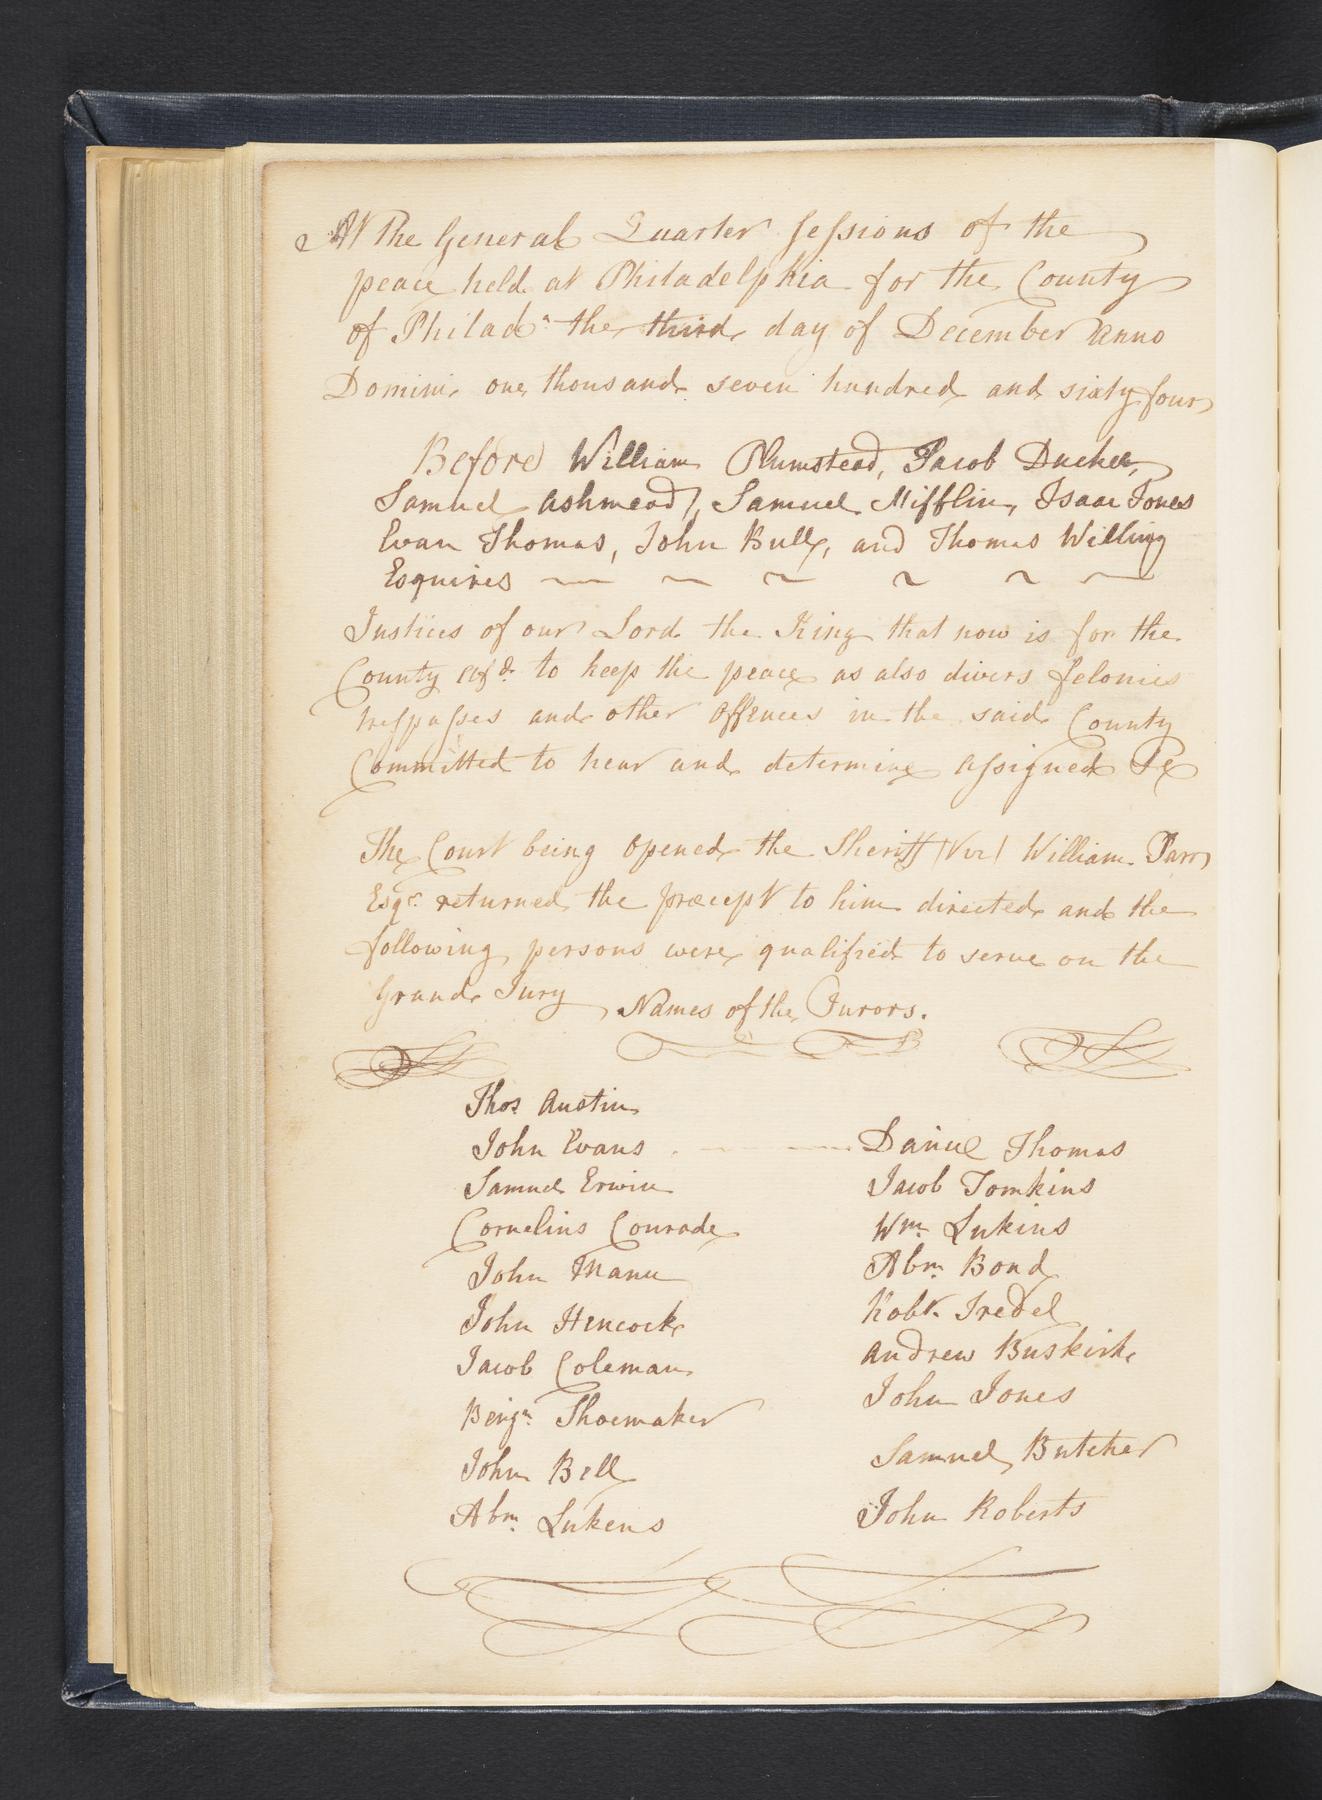 At the General Quarter Sessions of the
peace held at Philadelphia for the County
of Philada. the third day of December Anno
Domini one thousand seven hundred and sixty four
Before William Plumstead, Jacob Duchee,
Samuel Ashmead, Samuel Mifflin, Isaac Jones
Evan Thomas, John Bull, and Thomas Willing
Esquires
Justices of our Lord the King that now is for the
County afd. to keep the peace as also divers felonies
trespasses and other Offences in the said County
Committed to hear and determine Assigned &c
The Court being Opened the Sheriff (Viz) William Parr
Esqr. returned the præcept to him directed and the
following persons were qualified to serve on the
Grand Jury
Names of the Jurors.
Thos. Austin
John Evans
Samuel Erwin
Cornelius Conrade
John Mann
John Hencock
Jacob Coleman
Benjn. Shoemaker
John Bell
Abm. Lukens
Daniel Thomas
Jacob Tomkins
Wm. Lukins
Abm. Bond
Robt. Iredel
Andrew Buskirk
John Jones
Samuel Butcher
John Roberts